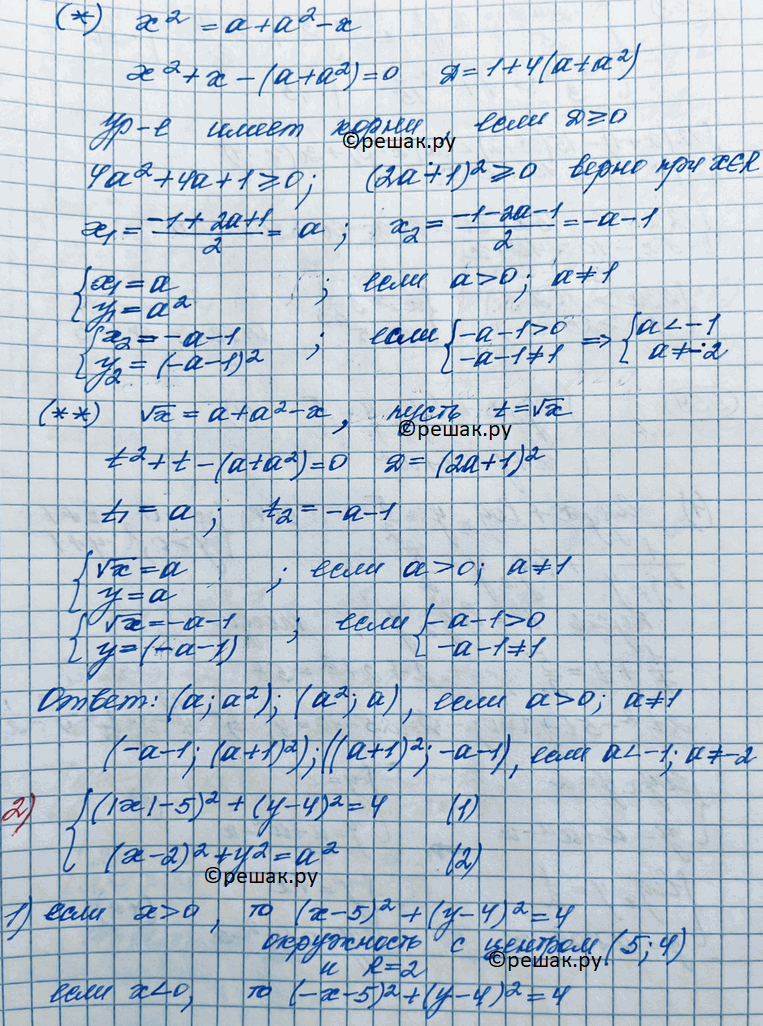 (*) x² = a + a² - x
x² + x - (a + a²) = 0 D = 1 + 4(a + a²)
Ур-е имеет корни, если D ≥ 0
©решак.ру
4a² + 4a + 1 ≥ 0; (2a + 1)² ≥ 0 верно при x∈R
x₁ = (-1 + 2a + 1)/2 = a; x₂ = (-1 - 2a - 1)/2 = -a - 1
{x₁ = a; если a > 0; a ≠ 1
{y₁ = a²
{x₂ = -a - 1; если {-a - 1 > 0 => {a < -1
{y₂ = (-a - 1)² {-a - 1 ≠ 1 {a ≠ -2
(**) √x = a + a² - x, пусть t = √x
©решак.ру
t² + t - (a + a²) = 0 D = (2a + 1)²
t₁ = a; t₂ = -a - 1
{√x = a; если a > 0; a ≠ 1
{y = a
{√x = -a - 1; если {-a - 1 > 0
{y = (-a - 1) {-a - 1 ≠ 1
Ответ: (a; a²); (a²; a), если a > 0; a ≠ 1
(-a - 1; (a + 1)²); ((a + 1)²; -a - 1), если a < -1; a ≠ -2
2) {(|x| - 5)² + (y - 4)² = 4 (1)
{(x - 2)² + y² = a² (2)
©решак.ру
1) если x > 0, то (x - 5)² + (y - 4)² = 4
окружность с центром (5; 4)
и R = 2 ©решак.ру
если x < 0, то (-x - 5)² + (y - 4)² = 4